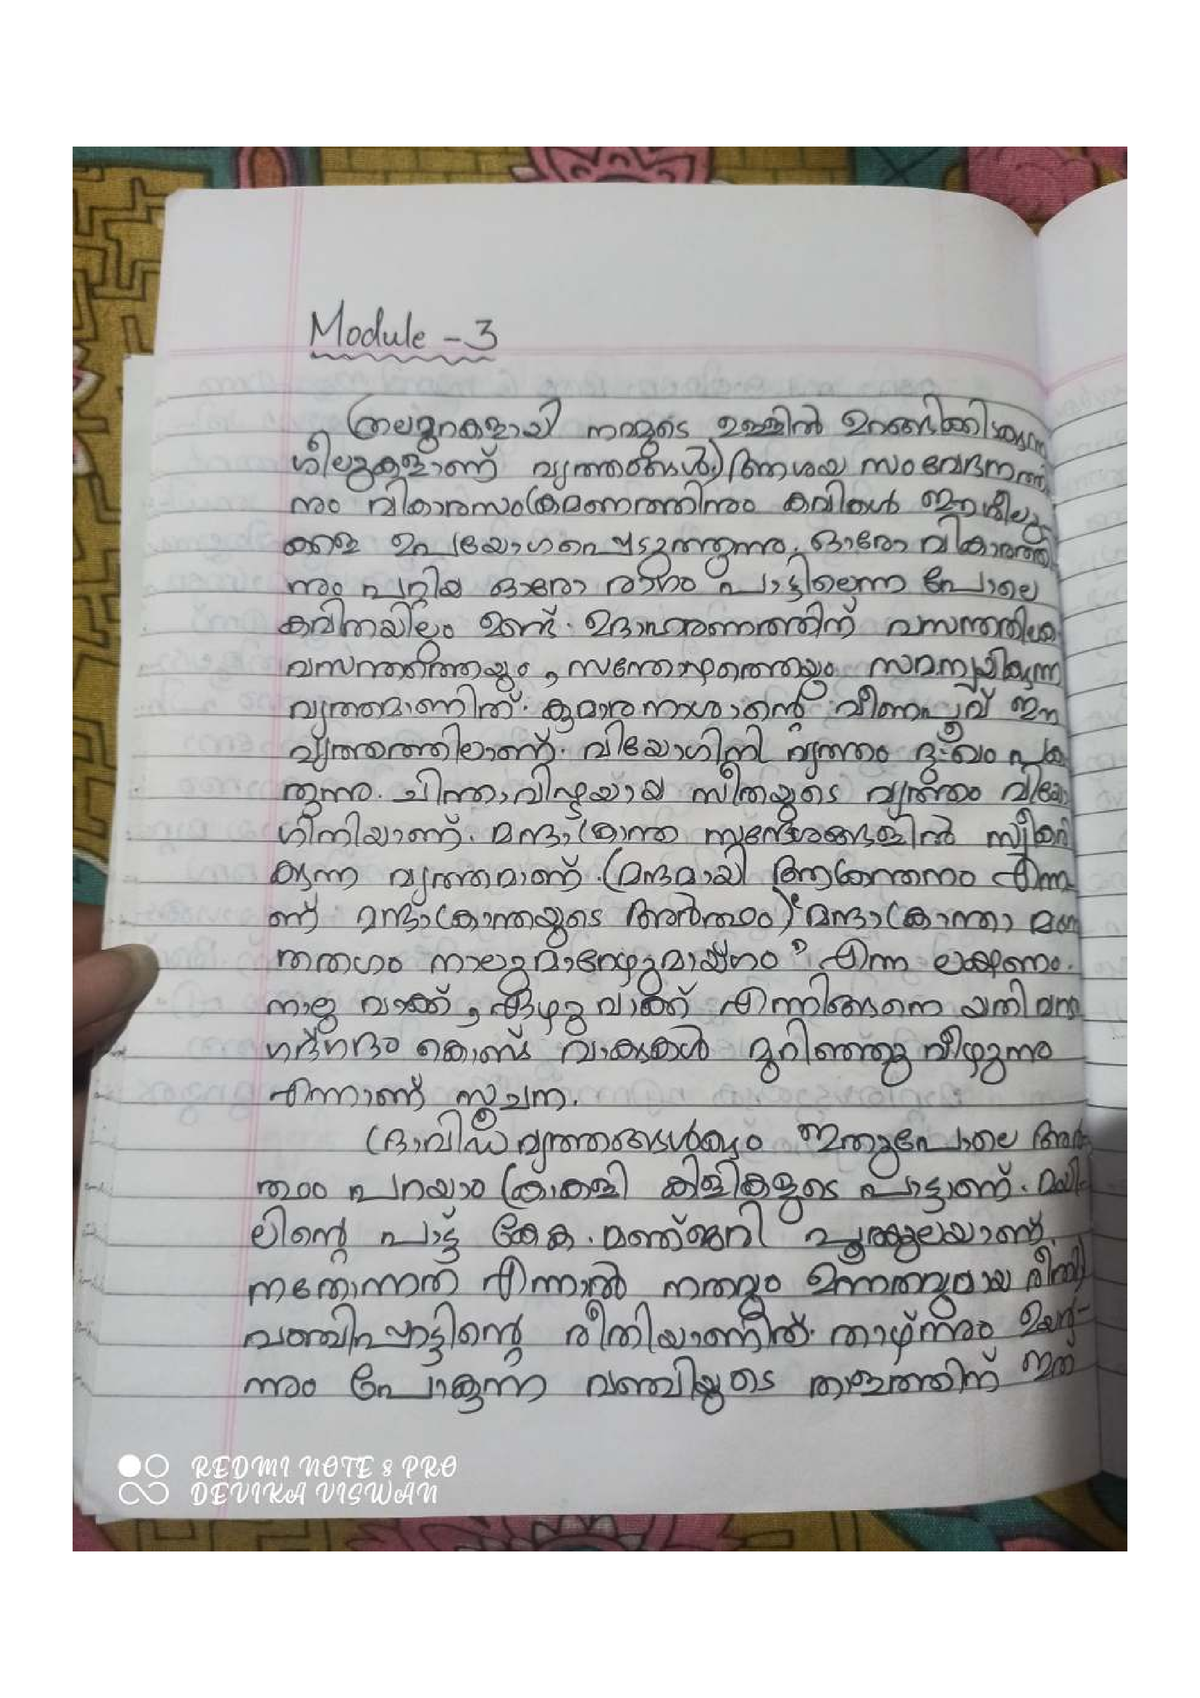 Module - 3
(തലമുറകളായി നമ്മുടെ ഉള്ളിൽ ഉറങ്ങിക്കിടക്കുന്ന
ശീലുകളാണ് വൃത്തങ്ങൾ) ആശയ സംവേദനത്തി
നും വികാരസംക്രമണത്തിനും കവികൾ ഈ ശീലു
കളെ ഉപയോഗപ്പെടുത്തുന്നു. ഓരോ വികാരത്തി
നും പറ്റിയ ഓരോ രാഗം പാട്ടിലെന്ന പോലെ
കവിതയിലും ഉണ്ട്. ഉദാഹരണത്തിന് വസന്തതിലക
വസന്തത്തെയും, സന്തോഷത്തെയും സമന്വയിക്കുന്ന
വൃത്തമാണിത്. കുമാരനാശാന്റെ വീണപൂവ് ഈ
വൃത്തത്തിലാണ്. വിയോഗിനി വൃത്തം ദുഃഖം പക
രുന്നു. ചിന്താവിഷ്ടയായ സീതയുടെ വൃത്തം വിയോ
ഗിനിയാണ്. മന്ദാക്രാന്ത സന്ദേശങ്ങളിൽ സ്വീകരി
ക്കുന്ന വൃത്തമാണ്. (മന്ദമായി ആക്രന്ദനം എന്നാ
ണ് മന്ദാക്രാന്തയുടെ അർത്ഥം) "മന്ദാക്രാന്താ മഭ
നതതഗം നാലുമാറേഴുമായ്ഗം" എന്ന ലക്ഷണം.
നാലു വാക്ക്, ഏഴു വാക്ക് എന്നിങ്ങനെ യതി വന്നു
ഗദ്ഗദം കൊണ്ട് വാക്കുകൾ മുറിഞ്ഞു വീഴുന്നു
എന്നാണ് സൂചന.
ദ്രാവിഡ വൃത്തങ്ങൾക്കും ഇതുപോലെ അർ
ത്ഥം പറയാം (കാകളി കിളികളുടെ പാട്ടാണ്. മയി
ലിന്റെ പാട്ട് കേക. മഞ്ജരി പൂങ്കുലയാണ്.
നതോന്നത എന്നാൽ നതവും ഉന്നതവുമായ രീതി
വഞ്ചിപ്പാട്ടിന്റെ രീതിയാണിത്. താഴ്ന്നും ഉയർ-
ന്നും പോകുന്ന വഞ്ചിയുടെ താളത്തിന് ഇത്
REDMI NOTE 8 PRO
DEVIKA VISWAN